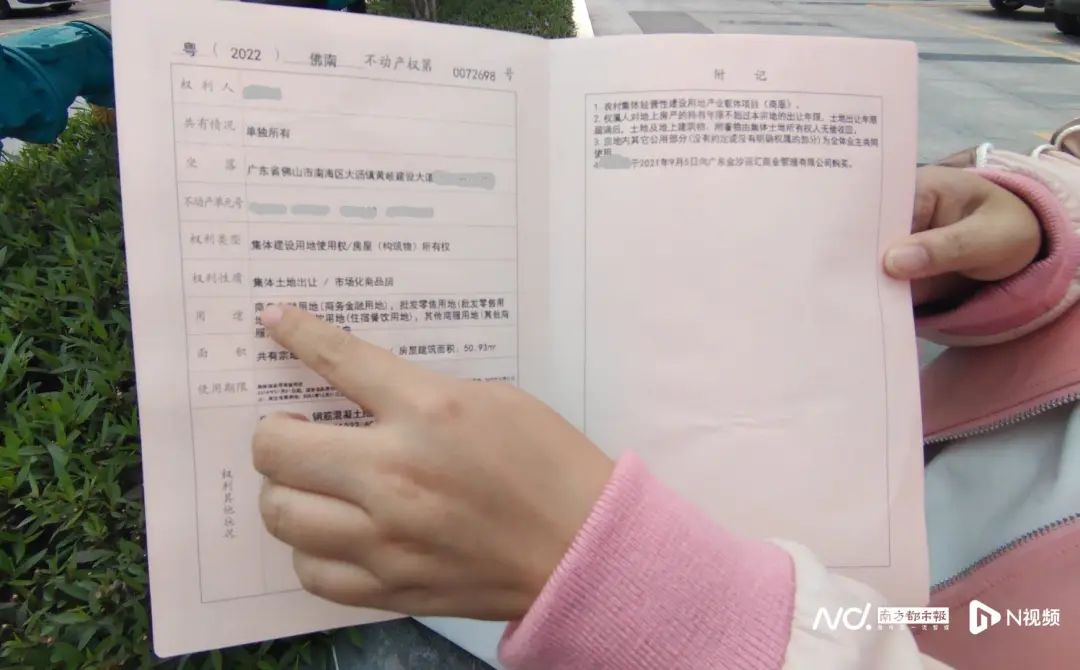 粤（2022）佛南 不动产权第 0072698 号
权利人
共有情况 单独所有
坐落 广东省佛山市南海区大沥镇黄岐建设大道
不动产单元号
权利类型 集体建设用地使用权/房屋（构筑物）所有权
权利性质 集体土地出让 / 市场化商品房
用途 用地(商务金融用地)，批发零售用地(批发零售用
用地(住宿餐饮用地)，其他商服用地(其他商
面积 共有宗地 / 房屋建筑面积：50.93㎡
使用期限
钢筋混凝土
权利其他状况
附 记
1. 农村集体经营性建设用地产业载体项目（商服）。
2. 权属人对地上房产的持有年限不超过本宗地的出让年限，土地出让年限
届满后，土地及地上建筑物、附着物由集体土地所有权人无偿收回。
3. 宗地内其它公用部分(没有约定或没有明确权属的部分)为全体业主共同
使用。
4. 于2021年9月5日向广东金沙丽汇商业管理有限公司购买。
N视频
南方都市报